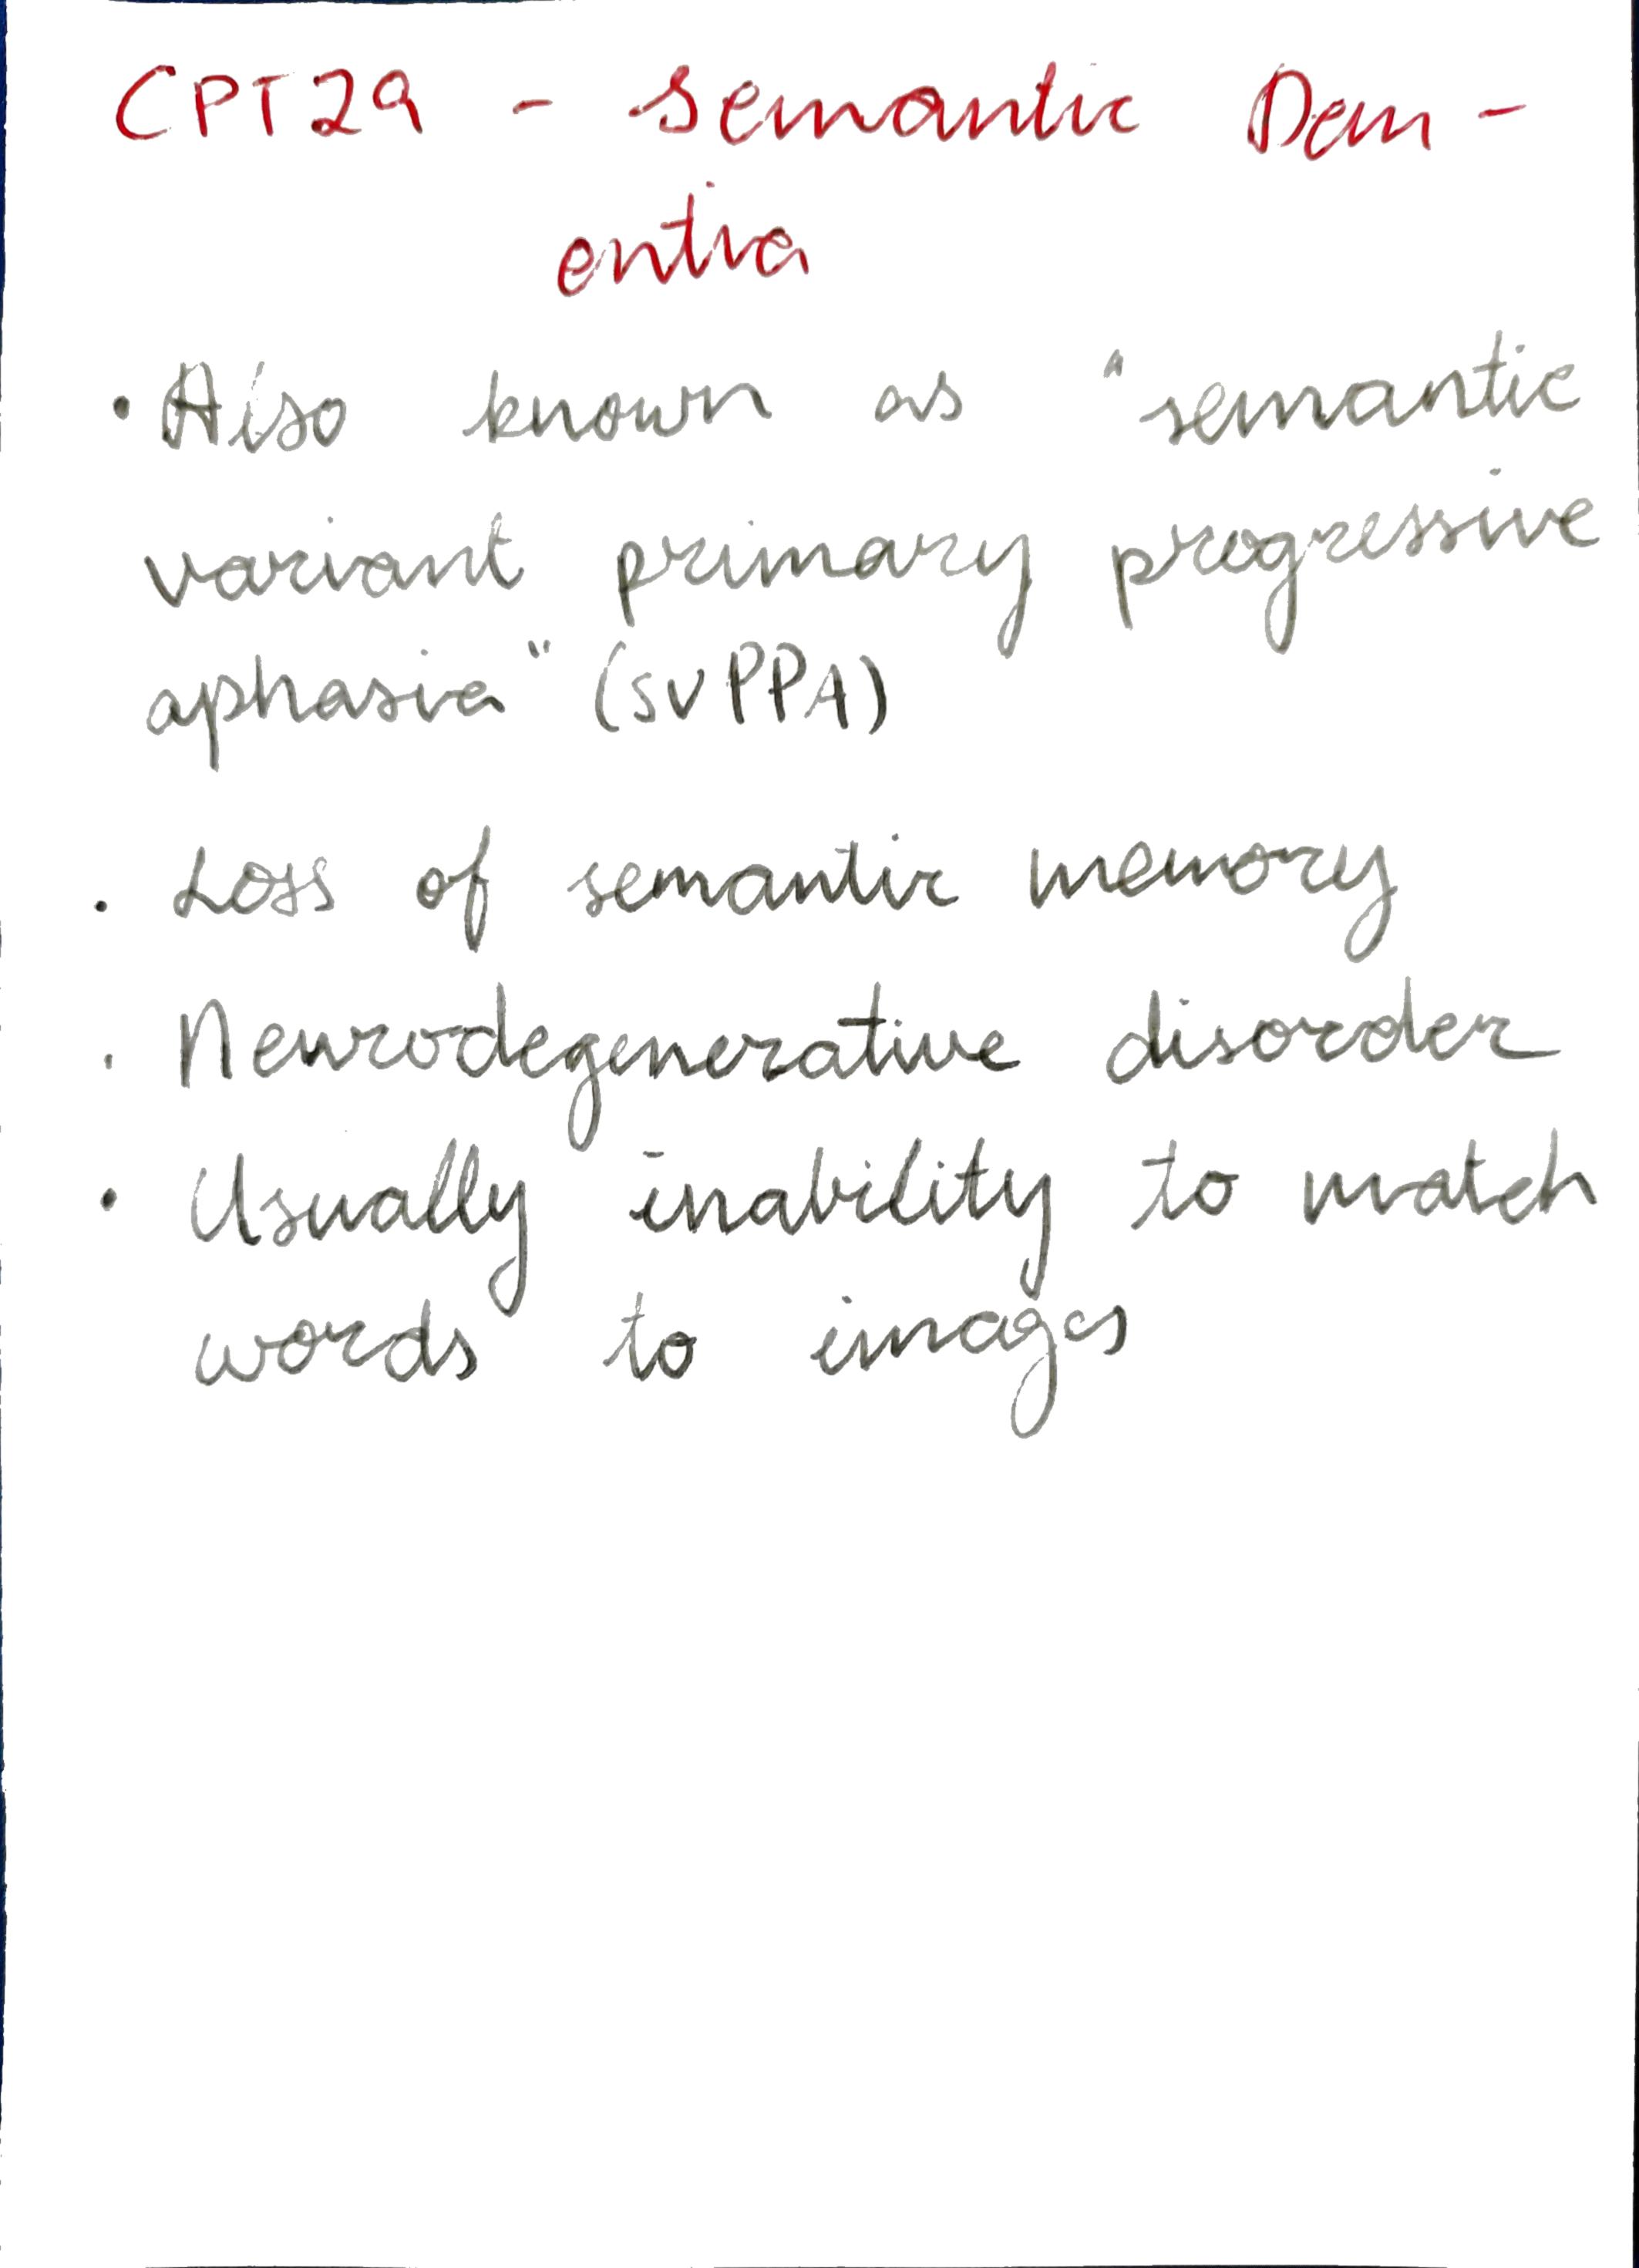 CPT29 - Semantic Dem-
entia
• Also known as "semantic
variant primary progressive
aphasia" (SVPPA)
• Loss of semantic memory
• Neurodegenerative disorder
• Usually inability to match
words to images